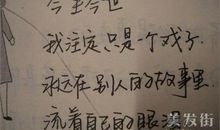 今生今世
我注定只是个戏子
永远在别人的故事里
流着自己的眼泪
美发街